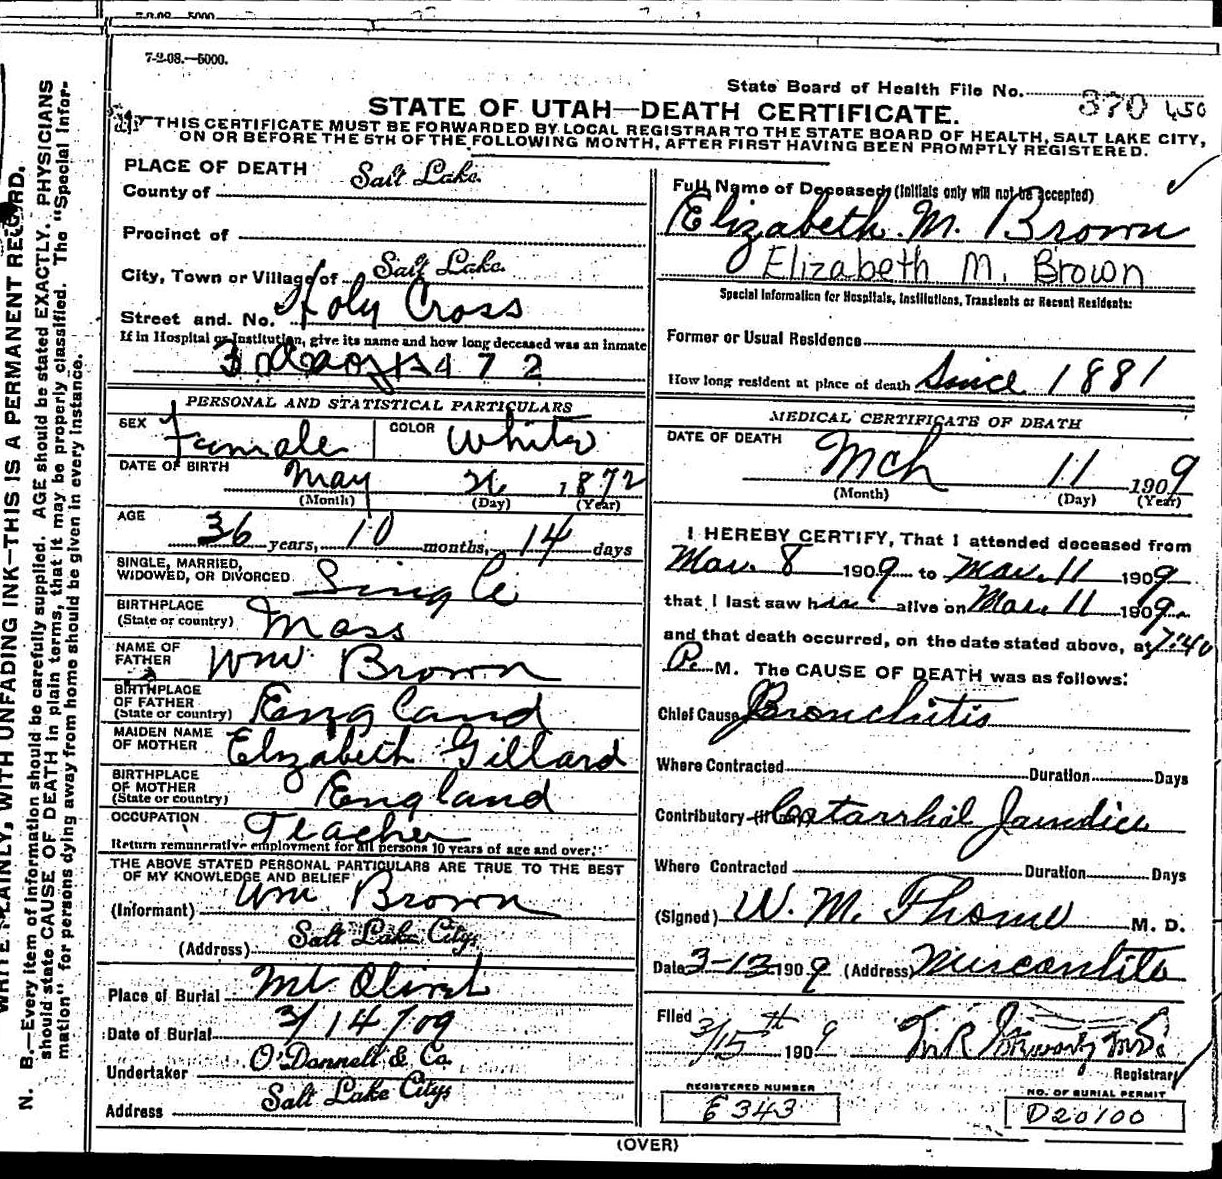 7-2-08.—5000.
State Board of Health File No. 370 450
STATE OF UTAH—DEATH CERTIFICATE.
THIS CERTIFICATE MUST BE FORWARDED BY LOCAL REGISTRAR TO THE STATE BOARD OF HEALTH, SALT LAKE CITY,
ON OR BEFORE THE 5TH OF THE FOLLOWING MONTH, AFTER FIRST HAVING BEEN PROMPTLY REGISTERED.
PLACE OF DEATH
County of Salt Lake
Precinct of
City, Town or Village of Salt Lake
Street and No. Holy Cross
If in Hospital or Institution, give its name and how long deceased was an inmate
3 days 12472
PERSONAL AND STATISTICAL PARTICULARS
SEX Female COLOR White
DATE OF BIRTH May 26 1872
(Month) (Day) (Year)
AGE 36 years, 10 months, 14 days
SINGLE, MARRIED,
WIDOWED, OR DIVORCED Single
BIRTHPLACE
(State or country) Mass
NAME OF
FATHER Wm Brown
BIRTHPLACE
OF FATHER
(State or country) England
MAIDEN NAME
OF MOTHER Elizabeth Gillard
BIRTHPLACE
OF MOTHER
(State or country) England
OCCUPATION Teacher
Return remunerative employment for all persons 10 years of age and over.
THE ABOVE STATED PERSONAL PARTICULARS ARE TRUE TO THE BEST
OF MY KNOWLEDGE AND BELIEF
(Informant) Wm Brown
(Address) Salt Lake City
Place of Burial Mt Olivet
Date of Burial 3/14/09
Undertaker O'Donnell & Co.
Address Salt Lake City
Full Name of Deceased (Initials only will not be accepted)
Elizabeth M. Brown
Elizabeth M. Brown
Special Information for Hospitals, Institutions, Transients or Recent Residents:
Former or Usual Residence
How long resident at place of death Since 1881
MEDICAL CERTIFICATE OF DEATH
DATE OF DEATH Mch 11 1909
(Month) (Day) (Year)
I HEREBY CERTIFY, That I attended deceased from
Mar. 8 1909 to Mar. 11 1909
that I last saw her alive on Mar. 11 1909
and that death occurred, on the date stated above, at 7:40
P. M. The CAUSE OF DEATH was as follows:
Chief Cause Bronchitis
Where Contracted Duration Days
Contributory Catarrhal Jaundice
Where Contracted Duration Days
(Signed) W. M. Thome M. D.
Date 3-13 1909 (Address) Mercantile
Filed 3/15th 1909
Registrar
REGISTERED NUMBER
E343
NO. OF BURIAL PERMIT
D20100
(OVER)
WRITE PLAINLY, WITH UNFADING INK—THIS IS A PERMANENT RECORD.
N. B.—Every item of information should be carefully supplied. AGE should be stated EXACTLY. PHYSICIANS
should state CAUSE OF DEATH in plain terms, that it may be properly classified. The "Special Infor-
mation" for persons dying away from home should be given in every instance.